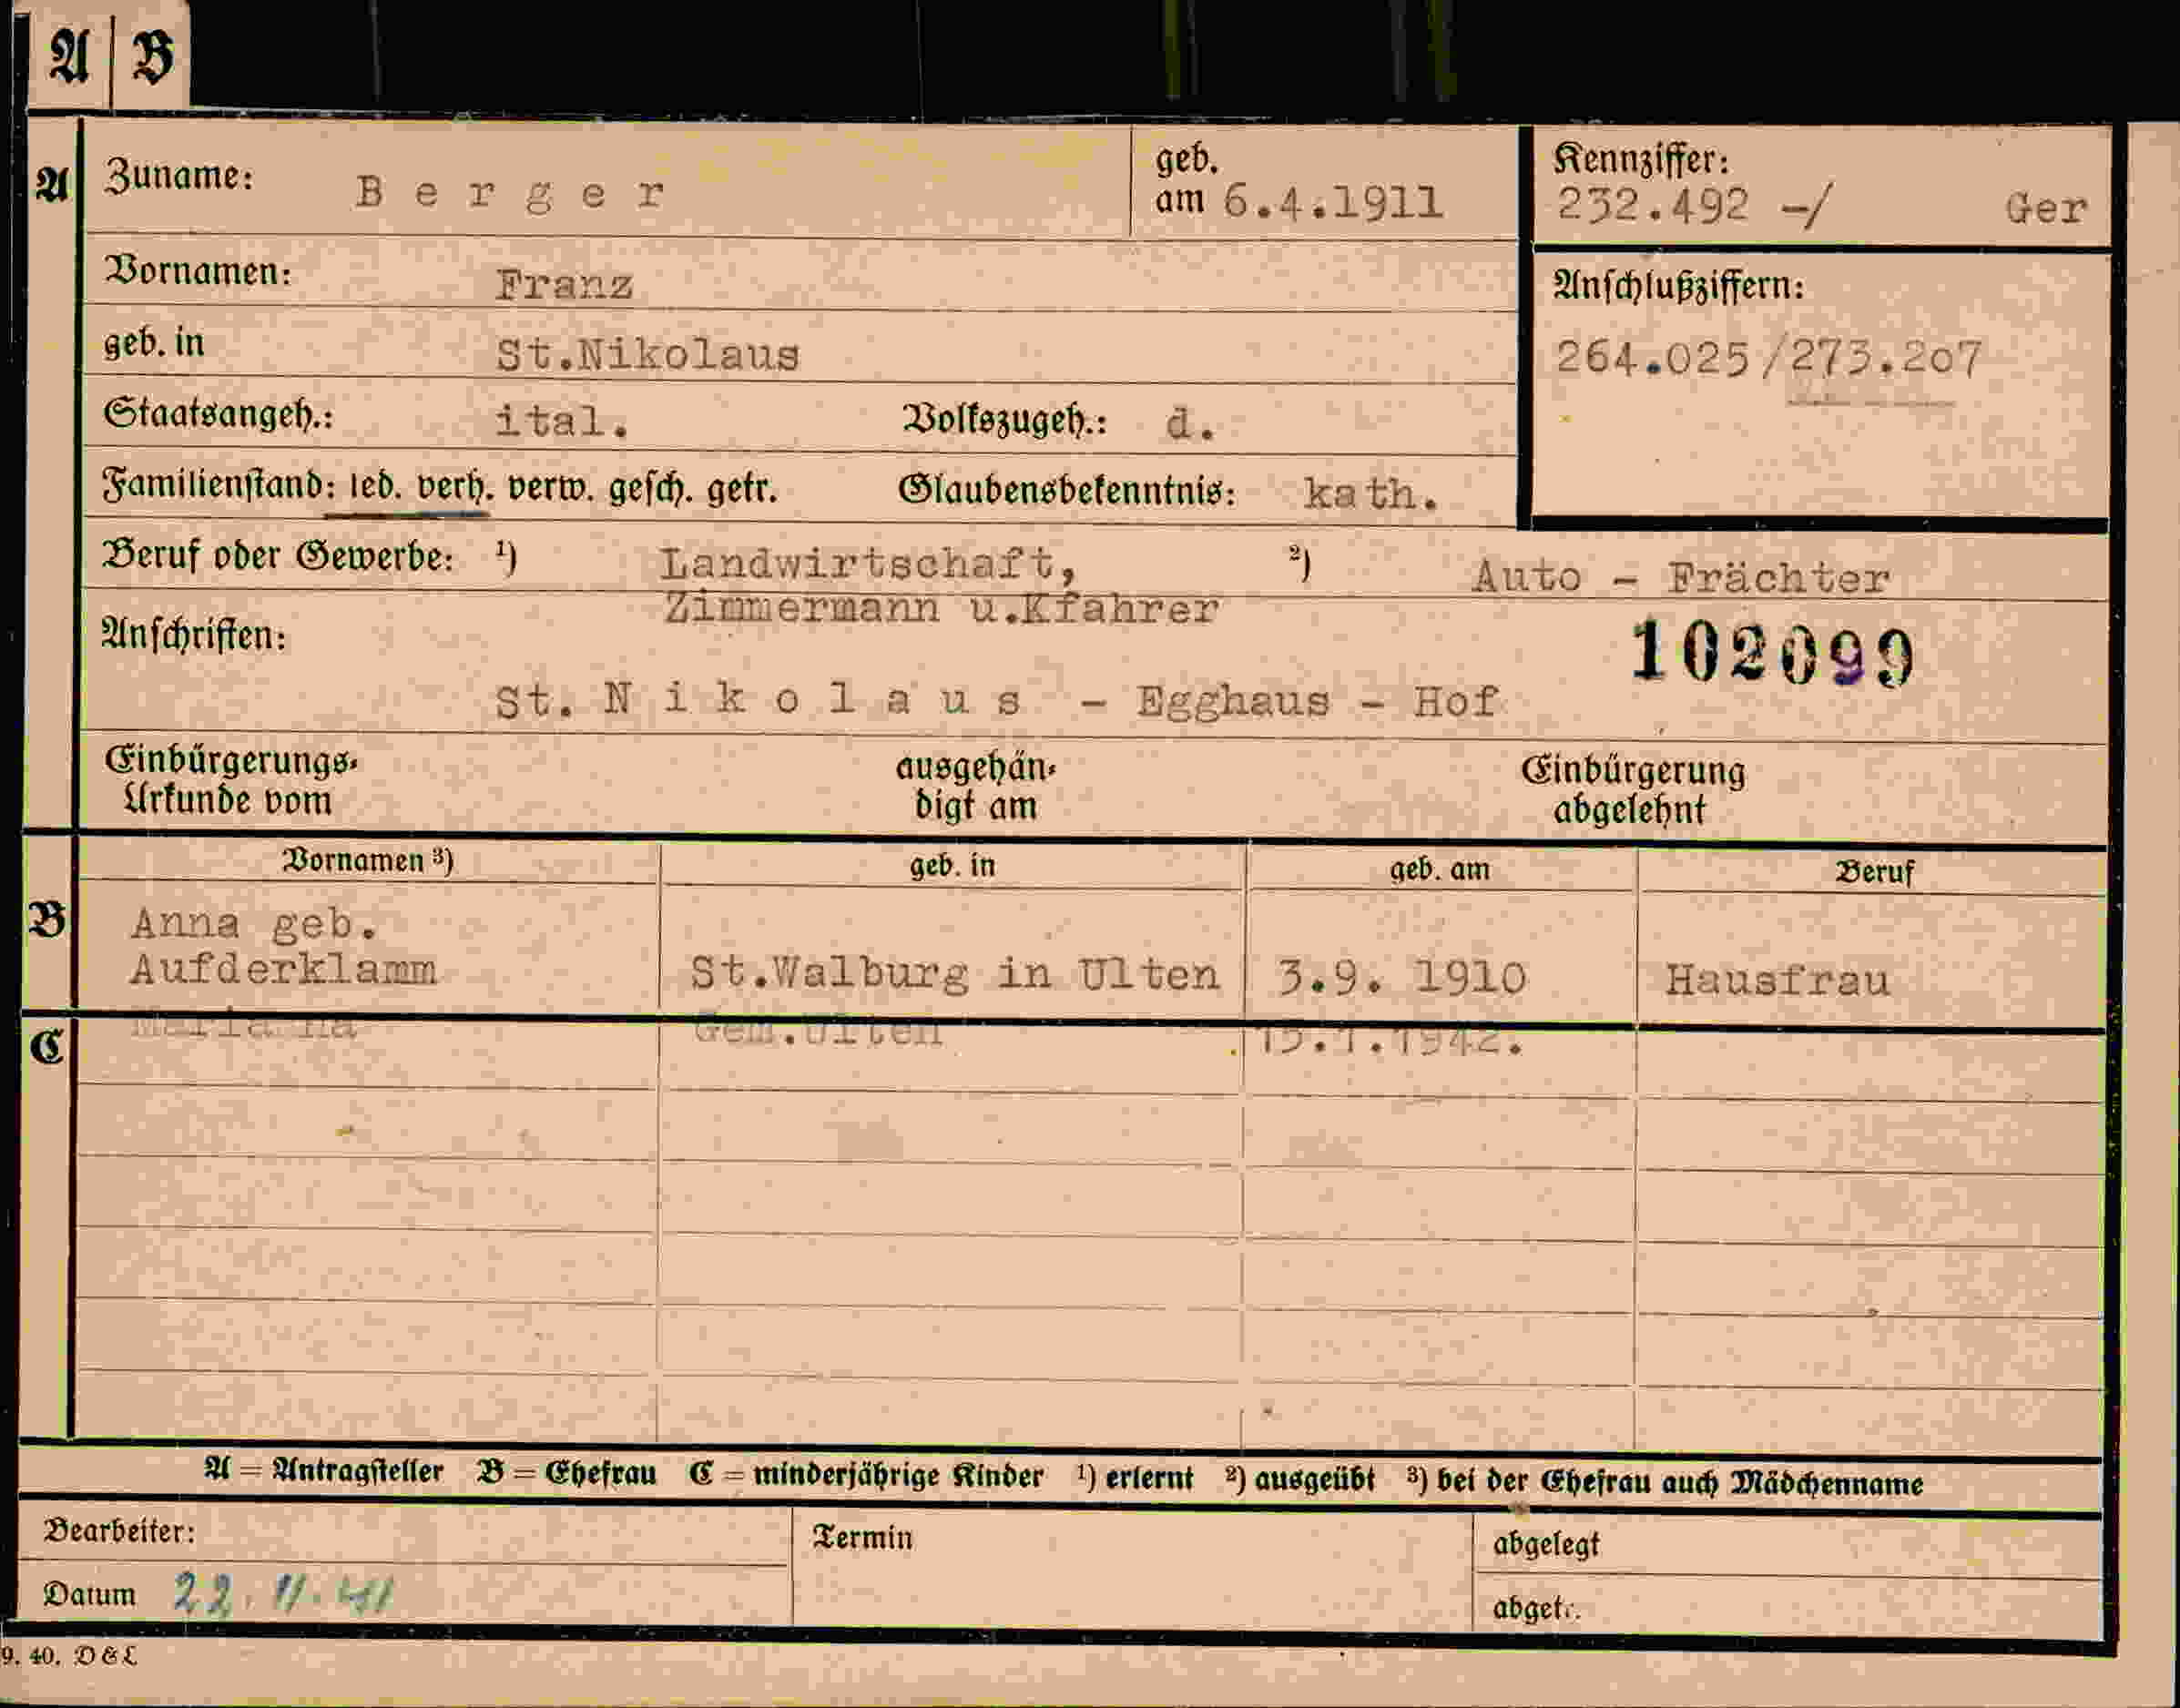 A B
A Zuname: Berger geb. am 6.4.1911 Kennziffer: 232.492 -/ Ger
Vornamen: Franz Anschlußziffern:
geb. in St.Nikolaus 264.025/273.2o7
Staatsangeh.: ital. Volkszugeh.: d.
Familienstand: led. verh. verw. gesch. getr. Glaubensbekenntnis: kath.
Beruf oder Gewerbe: ¹) Landwirtschaft, ²) Auto - Frächter
Zimmermann u.Kfahrer
Anschriften: 102099
St. Nikolaus - Egghaus - Hof
Einbürgerungs- ausgehän- Einbürgerung
Urkunde vom digt am abgelehnt
Vornamen ³) geb. in geb. am Beruf
B Anna geb.
Aufderklamm St.Walburg in Ulten 3.9. 1910 Hausfrau
C Maria Gem.Ulten .1942.
A = Antragsteller B = Ehefrau C = minderjährige Kinder ¹) erlernt ²) ausgeübt ³) bei der Ehefrau auch Mädchenname
Bearbeiter: Termin abgelegt
Datum 22.11.41 abgetr.
9. 40. D & L